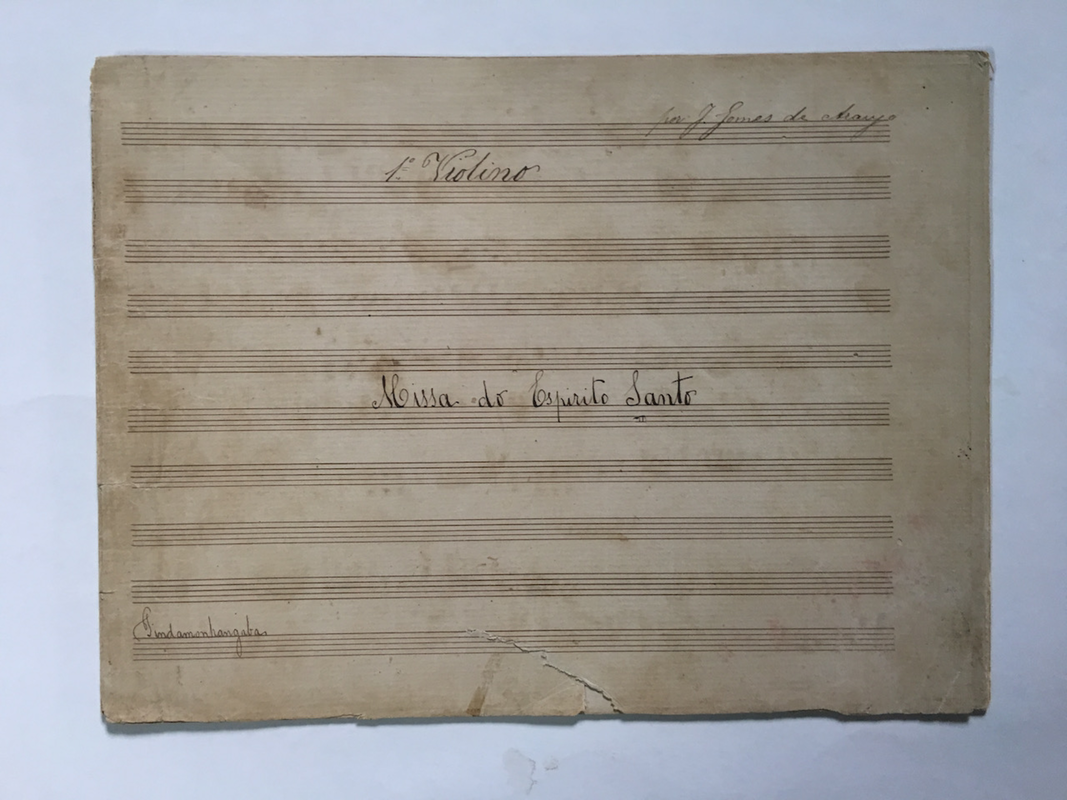 por J. Gomes de Araujo
1º Violino
Missa do Espirito Santo
Pindamonhangaba